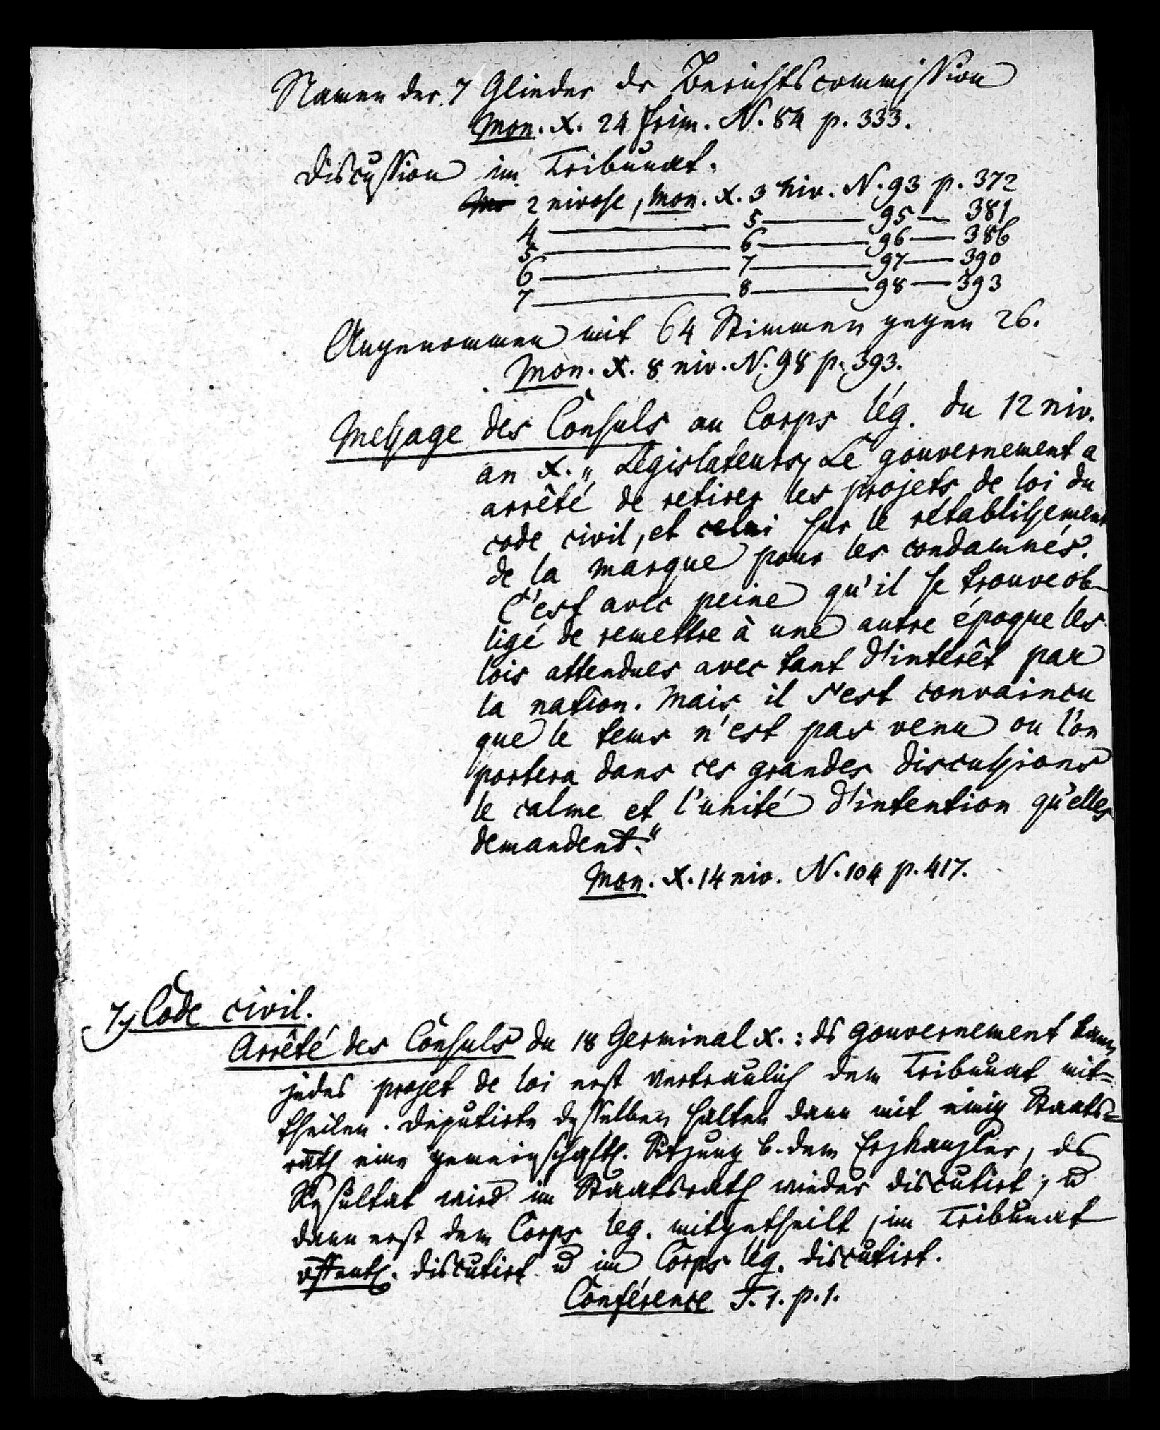 Namen der 7 Glieder dr Berichtscommission
Mon. X. 24 frim. N. 84 p. 333.
Discussion im Tribunat.
2 nivose, Mon. X. 3 niv. N. 93 p. 372
4 — 5 — 95 — 381
5 — 6 — 96 — 386
6 — 7 — 97 — 390
7 — 8 — 98 — 393
Angenommen mit 64 Stimmen gegen 26.
Mon. X. 8 niv. N. 98 p. 393.
Message des Consuls au Corps lég. du 12 niv.
an X. „ Législateurs, Le gouvernement a
arrêté de retirer les projets de loi du
code civil, et celui sur le rétablissement
de la marque pour les condamnés.
C'est avec peine qu'il se trouve ob-
ligé de remettre à une autre époque les
lois attendues avec tant d'interêt par
la nation. Mais il s'est convaincu
que le tems n'est pas venu ou l'on
portera dans ces grandes discussions
le calme et l'unité d'intention qu'elles
demandent.“
Mon. X. 14 niv. N. 104 p. 417.
7, Code civil.
Arrêté des Consuls du 18 Germinal X. : ds gouvernement kann
jedes projet de loi erst vertraulich dem Tribunat mit=
theilen. Deputirte desselben halten dann mit einig Staats=
räth eine gemeinschaftl. Sitzung b. dem Erzkanzler, ds
Resultat wird im Staatsrath wieder discutirt, u
dann erst dem Corps leg. mitgetheilt, im Tribunat
öffentl. discutirt u im Corps lég. discutirt.
Conférence T. 1. p. 1.